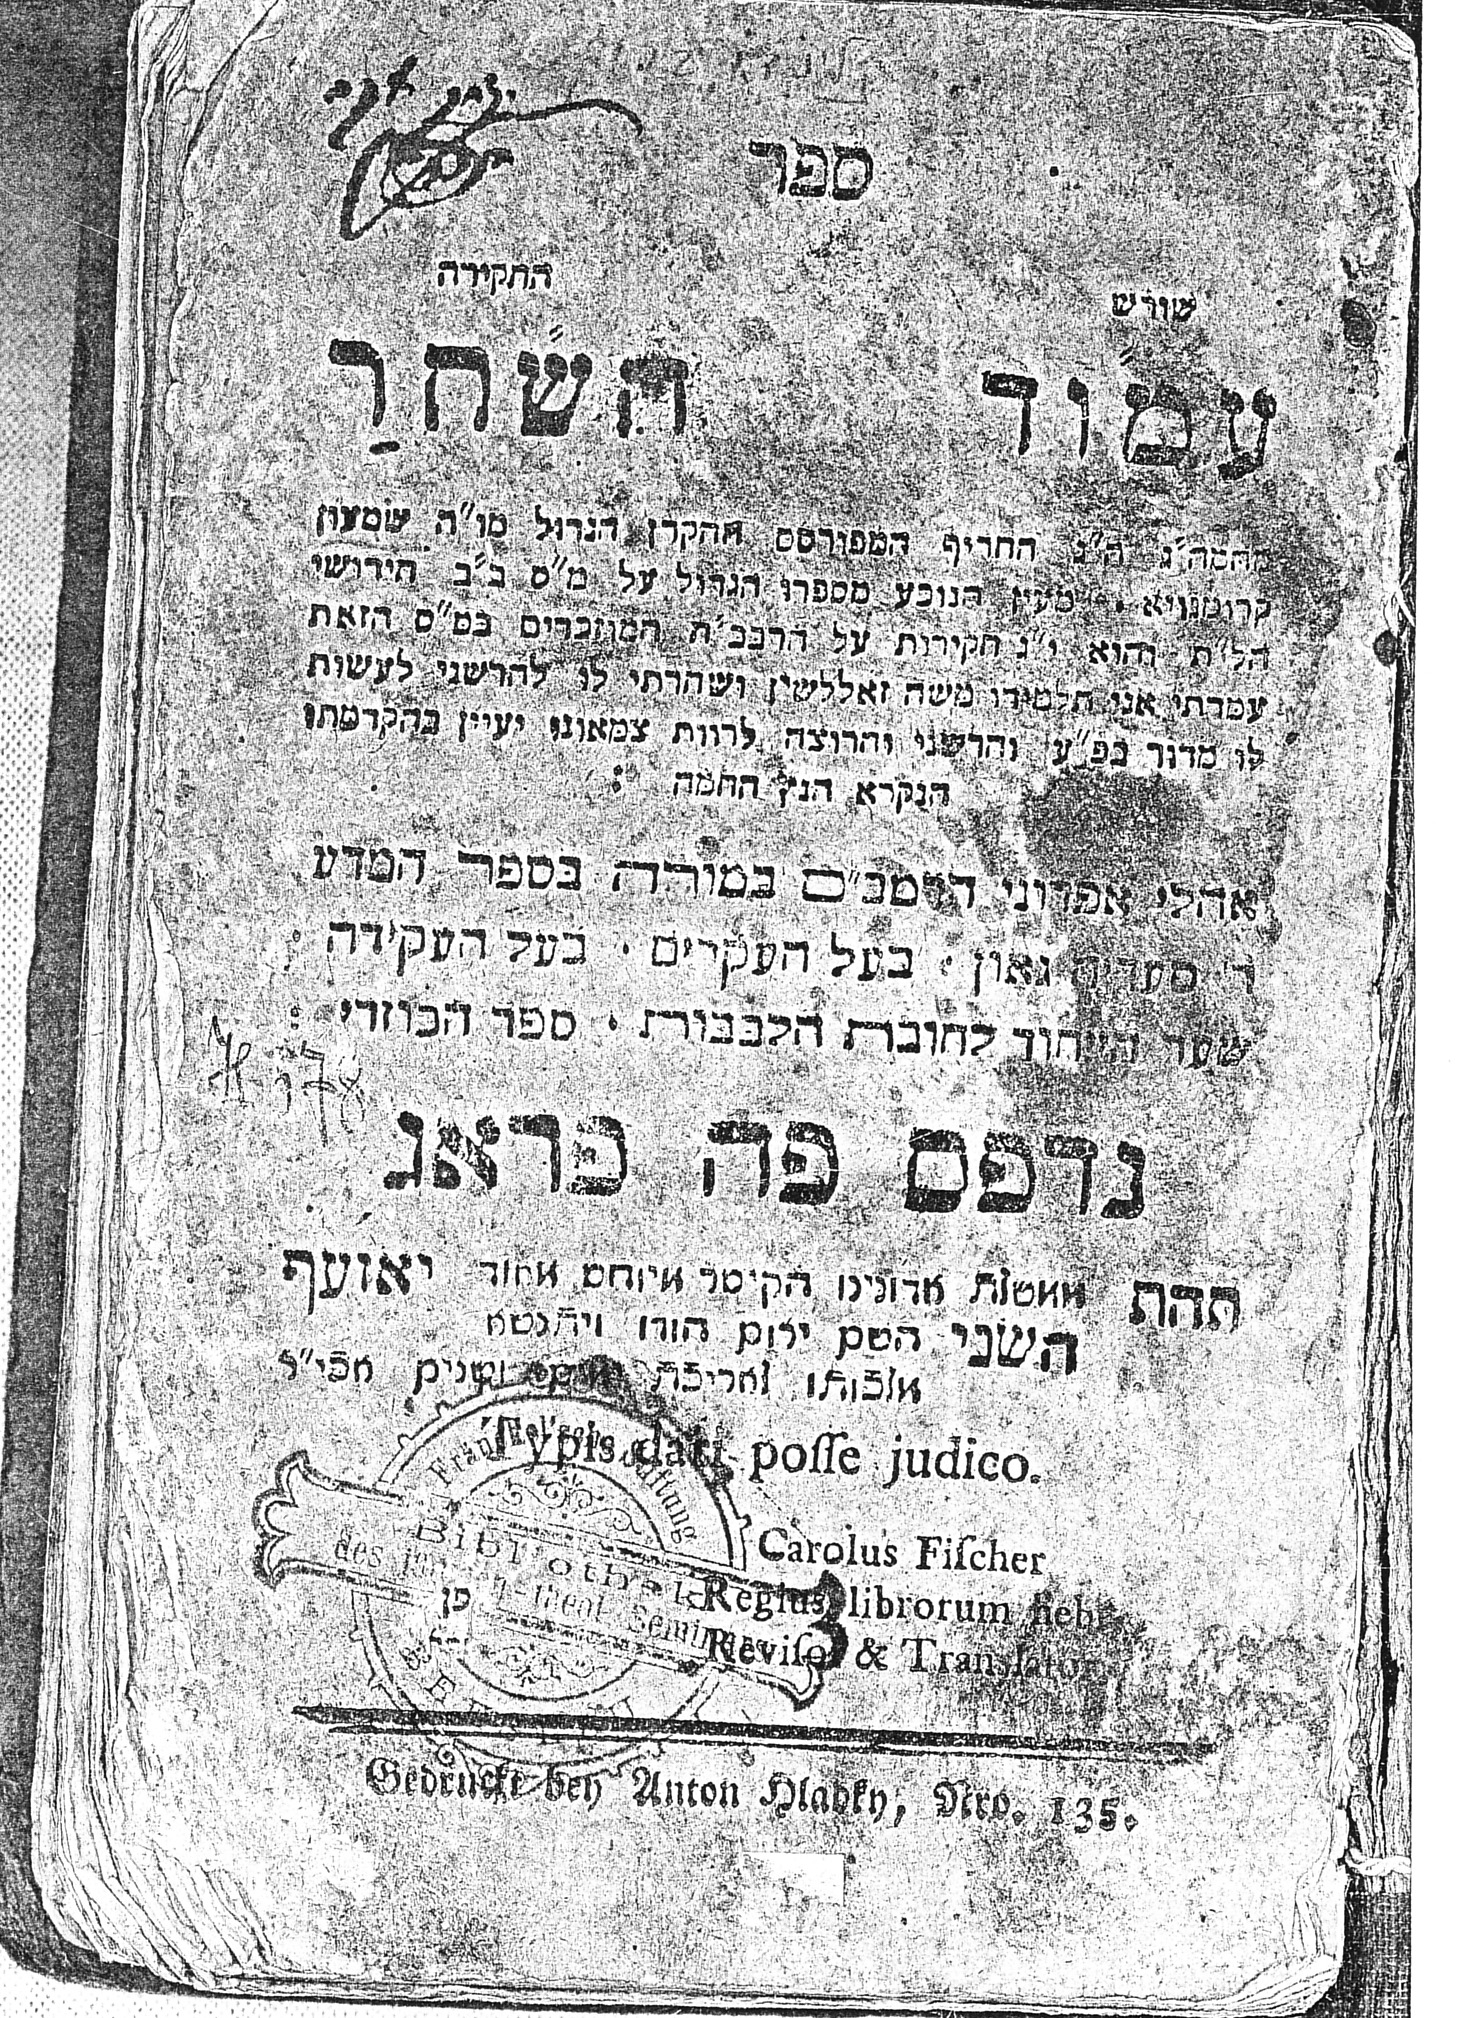 ספר
שורש החקירה
עמוד השחר
החריף המפורסם החקרן הגדול מו״ה שמעון
קרומנויא . מעין הנובע מספרו הגדול על מ״ס ב״ב חידושי
הל״ת והוא י״ג חקירות על הרבב״ח המוזכרים במ״ס הזאת
עמדתי אני תלמידו משה זאללשין ושהרתי לו להרשני לעשות
לו מדור בפ״ע והרשני והרוצה לרוות צמאונו יעיין בהקדמתו
הנקרא הנץ החמה :
אהלי אפדוני הרמב״ם במורה בספר המדע
ר׳ סעדיה גאון . בעל העקרים . בעל העקידה
שער הייחוד לחובת הלבבות . ספר הכוזרי :
נדפס פה פראג
תחת ממשלת אדונינו הקיסר יאזעף
השני הטס ירום הודו ויתנשא
מלכותו ושנים אכי״ר
Typis dari posse judico.
Carolus Fischer
Regius librorum hebr.
Revisor & Translator
Bibliothek
des jüd. theol. Seminars
Gedruckt bey Anton Hladky, Nro. 135.